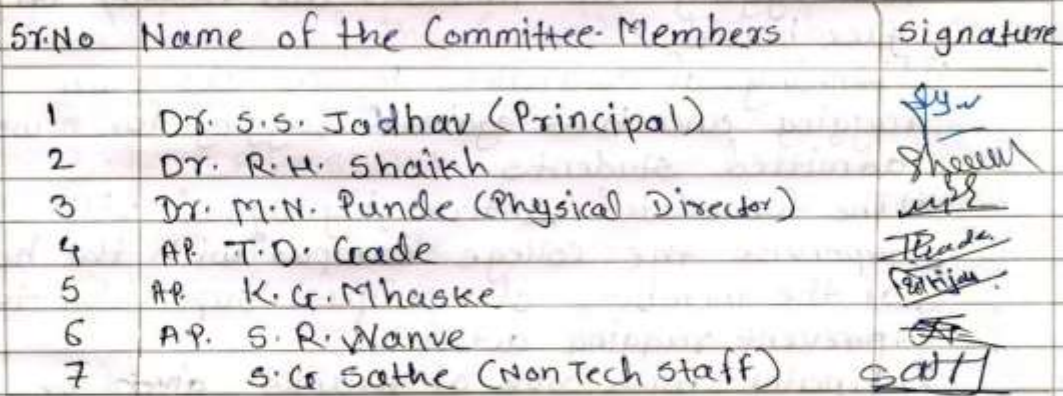 Sr.No Name of the Committee Members Signature
1 Dr. S.S. Jadhav (Principal)
2 Dr. R.H. Shaikh
3 Dr. M.N. Punde (Physical Director)
4 AP. T.D. Gade
5 AP. K.G. Mhaske
6 A.P. S.R. Nanve
7 S.G Sathe (Non Tech staff)